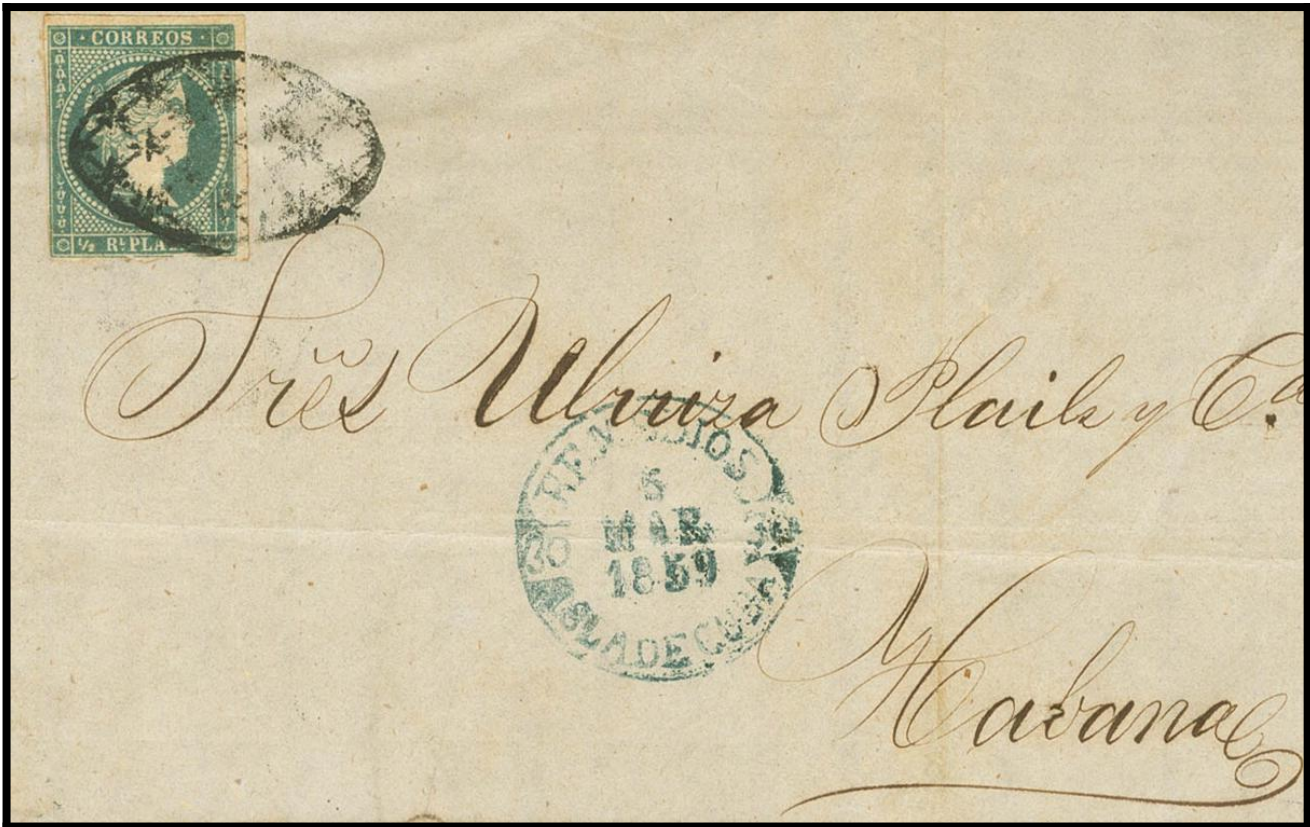 · CORREOS ·
½ Rˡ PLA
Sres Urruiza Plaile y Cª
REMEDIOS
30
5
MAR
1859
ISLA DE CUBA
Habana